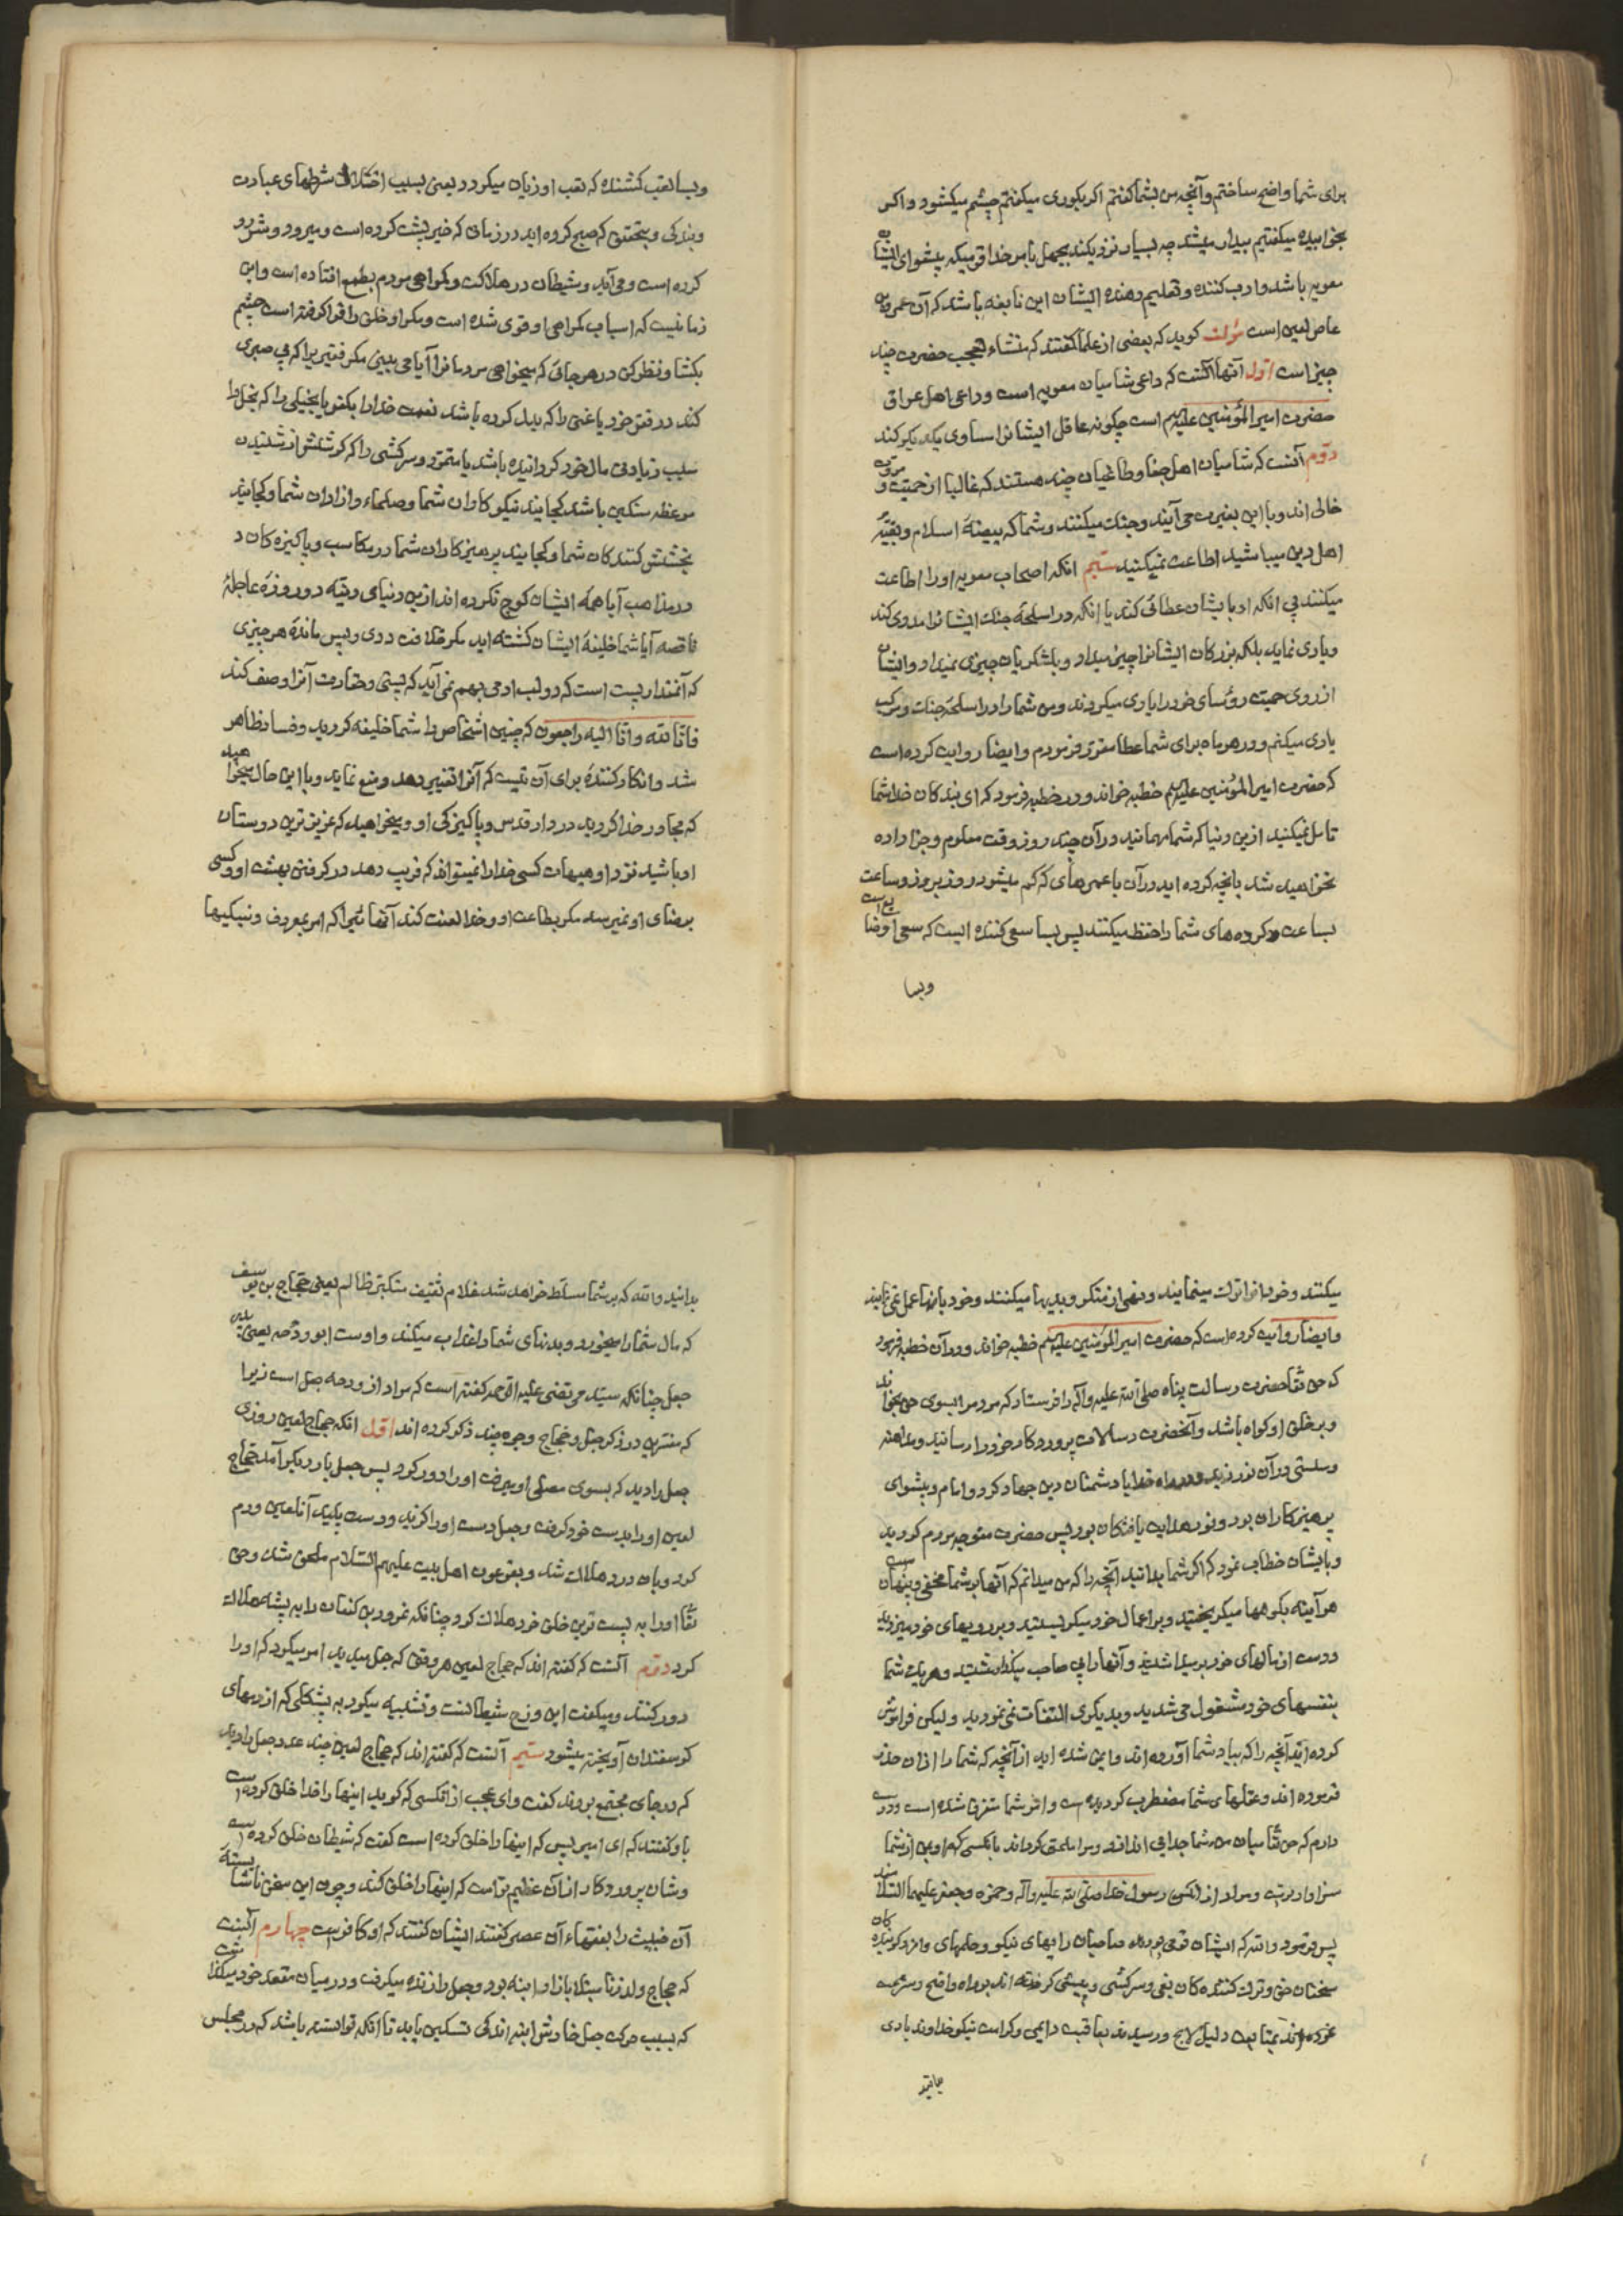 برای شما واضح ساختم و آنچه من بشما گفتم اکر بکوری میکفتم چشم میکشود و اکر
بخوابیده میکفتیم بیدار میشد چه بسیار نزدیکند بجهل بامر خدا قومیکه پیشوای ایشان
معویه باشد و ادب کننده و تعلیم دهنده ایشان این نابغه باشد که آن عمرو بن
عاص لعین است مؤلف کوید که بعضی از علما کفتند که منشاء تعجب حضرت چند
چیز است اول آنها آنست که داعی شامیان معویه است و داعی اهل عراق
حضرت امیر المؤمنین علیه السلم است چکونه عاقل ایشانرا مساوی یکدیکر کند
دوّم آنست که شامیان اهل جفا و طاغیان چند هستند که غالبا از حمیت و مروت
خالی اند و با این بغیرت می آیند و جنک میکنند و شما که بیضهٔ اسلام و بقیّهٔ
اهل دین میباشید اطاعت نمیکنید سیّم انکه اصحاب معویه او را اطاعت
میکنند بی انکه او بایشان عطائی کند یا انکه در اسلحهٔ جنک ایشانرا مددی کند
و یاری نماید بلکه بزرکان ایشانرا چیز میداد و بلشکریان چیزی نمیداد و ایشان
از روی حمیت رؤسای خود را یاری میکردند و من شما را در اسلحهٔ جنک و مرکب
یاری میکنم و در هر ماه برای شما عطا مقرّر فرمودم و ایضا روایت کرده است
که حضرت امیر المؤمنین علیه السلم خطبه خواند و در خطبه فرمود که ای بندکان خدا شما
تامل نمیکنید ازین دنیا که شما مهمانید در آن چند روز وقت معلوم و جزا داده
نخواهید شد بانچه کرده اید در آن با عمرهای که کم میشود روز بروز و ساعت
بساعت و کرده های شما را حفظ میکنند پس بسا سعی کننده ایست که سعی او ضایع است
و بسا
و بسا تعب کشنده که تعب او زیان میکردد یعنی بسبب اختلال شرطهای عبادت
و بندکی و بتحقیق که صبح کرده اید در زمان که خیر پشت کرده است و میرود و شر رو
کرده است و می آید و شیطان در هلاکت و کمراهی مردم بطمع افتاده است و این
زمانیست که اسباب کمراهی او قوی شده است و مکر او خلق را فرا کرفته است چشم
بکشا و نظر کن در هر جائی که میخواهی مردمانرا آیا می بینی مکر فقیریرا که بی صبری
کند در فقر خود یا غنی را که بدل کرده باشد نعمت خدا را بکفر یا بخیلی را که بخل را
سبب زیادتی مال خود کردانیده باشد یا متمرّد و سرکشی را که کوشش از شنیدن
موعظه سنکین باشد کجایند نیکوکاران شما و صلحاء و ازادان شما و کجایند
بخشش کنندکان شما و کجایند پرهیزکاران شما در مکاسب و پاکیزه کان د
در مذاهب آیا همهٔ ایشان کوچ نکرده اند ازین دنیای دنیّه دو روزهٔ عاجلهٔ
ناقصه آیا شما خلیفهٔ ایشان کشته اید مکر خلافت ددی و پس ماندهٔ هر چیزی
که آنمقدار پست است که دو لب ادمی بهم نمی آید که پستی و حقارت آنرا وصف کند
فانّا لله و انّا الیه راجعون که چنین اشخاص را شما خلیفه کردید و فساد ظاهر
شد و انکار کنندهٔ برای آن نیست که آنرا تغییر دهد و منع نماید و با این حال میخواهید
که مجاور خدا کردید در دار قدس و پاکیزکی او و میخواهید که عزیزترین دوستان
او باشید نزد او هیهات کسی خدا را نمیتواند که فریب دهد در کرفتن بهشت او و کسی
برضای او نمیرسد مکر بطاعت او و خدا لعنت کند آنهائیرا که امر بمعروف و نیکیها
میکنند و خود انرا ترک مینمایند و نهی از منکر و بدیها میکنند و خود بانها عمل می نمایند
و ایضا روایت کرده است که حضرت امیر المؤمنین علیه السلم خطبه خواند و در آن خطبه فرمود
که حق تعا حضرت رسالت پناه صلی الله علیه و آله را فرستاد که مردمرا بسوی حق بخواند
و بر خلق او کواه باشد و آنحضرت رسالات پروردکار خود را رسانید و مداهنه
و سستی در آن نورزید و در راه خدا با دشمنان دین جهاد کرد و امام و پیشوای
پرهیزکاران بود و نور هدایت یافتکان بود پس حضرت متوجه مردم کردید
و بایشان خطاب نمود که اکر شما بدانید آنچه را که من میدانم که آنها بر شما مخفی و پنهان است
هر آینه بکوهها میکریختید و بر اعمال خود میکریستید و بر رویهای خود میزدید
و دست از مالهای خود بر میداشتید و آنها را بی صاحب میکذاشتید و هر یک شما
بنفسهای خود مشغول می شدید و بدیکری التفات نمی نمودید و لیکن فراموش
کرده اید آنچه را که بیاد شما آورده اند و ایمن شده اید از آنچه که شما را از ان حذر
فرموده اند و عقلهای شما مضطرب کردیده است و امر شما متفرق شده است و دوست
دارم که حق تعا میان من و شما جدایی اندازد و مرا ملحق کرداند بانکسی که او بمن از شما
سزاوارترست و مراد از انکس رسول خدا صلی الله علیه و آله و حمزه و جعفر علیهما السلام مند
پس فرمود والله که ایشان قومی بودند صاحبان رایهای نیکو و حلمهای وافر و کوینده کان
سخنان حق و ترک کننده کان بغی و سرکشی و پیشی کرفته اند براه واضح و سرعت
نموده اند بمتابعت دلیل لایح و رسیدند بعاقبت دایمی و کرامت نیکو خداوند بادی
بدانید
بدانید والله که بر شما مسلّط خواهد شد غلام ثقیف متکبّر ظالم یعنی حجّاج بن یوسف
که مال شما را میخورد و بدنهای شما را عذاب میکند و اوست ابو وذحه یعنی پدر
جعل چنانکه سیّد مرتضی علیه الرحمه کفته است که مراد از وذحه جعل است زیرا
که مفسّرین در ذکر جعل و حجّاج وجوه چند ذکر کرده اند اوّل انکه حجاج لعین روزی
جعل را دید که بسوی مصلّی او میرفت او را دور کرد پس جعل بار دیکر آمد حجاج
لعین او را بدست خود کرفت و جعل دست او را کزید و دست پلید آنلعین ورم
کرد و بان درد هلاک شد و بفرعون اهل بیت علیهم السّلام ملحق شد و حق
تعا او را به پست ترین خلق خود هلاک کرد چنانکه نمرود بن کنعان را به پشه هلاک
کرد دوّم آنست که کفته اند که حجاج لعین هر وقتی که جعل میدید امر میکرد که او را
دور کنند و میکفت این وذح شیطانست و تشبیه میکرد به پشکلی که از دمهای
کوسفندان آویخته میشود سیّم آنست که کفته اند که حجاج لعین چند عدد جعل را دید
که در جای مجتمع بودند کفت وای عجب از انکسی که کوید اینها را خدا خلق کرده است
باو کفتند که ای امیر پس که اینها را خلق کرده است کفت که شیطان خلق کرده است
و شان پروردکار از آن عظیم تر است که اینها را خلق کند و چون این سخن ناشایستهٔ
آن خبیث را بفقهاء آن عصر کفتند ایشان کفتند که او کافرست چهارم آنست
که حجاج ولد زنا مبتلا بازار ابنه بود و جعل را زنده میکرفت و در میان مقعد خود میکذاشت
که بسبب حرکت جعل خارش ابنه اندکی تسکین یابد تا انکه توانسته باشد که در مجلس